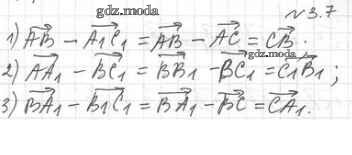 gdz.moda
№3.7
1) \overrightarrow{AB} - \overrightarrow{A_1C_1} = \overrightarrow{AB} - \overrightarrow{AC} = \overrightarrow{CB}.
gdz.moda
2) \overrightarrow{AA_1} - \overrightarrow{BC_1} = \overrightarrow{BB_1} - \overrightarrow{BC_1} = \overrightarrow{C_1B_1};
3) \overrightarrow{BA_1} - \overrightarrow{B_1C_1} = \overrightarrow{BA_1} - \overrightarrow{BC} = \overrightarrow{CA_1}.